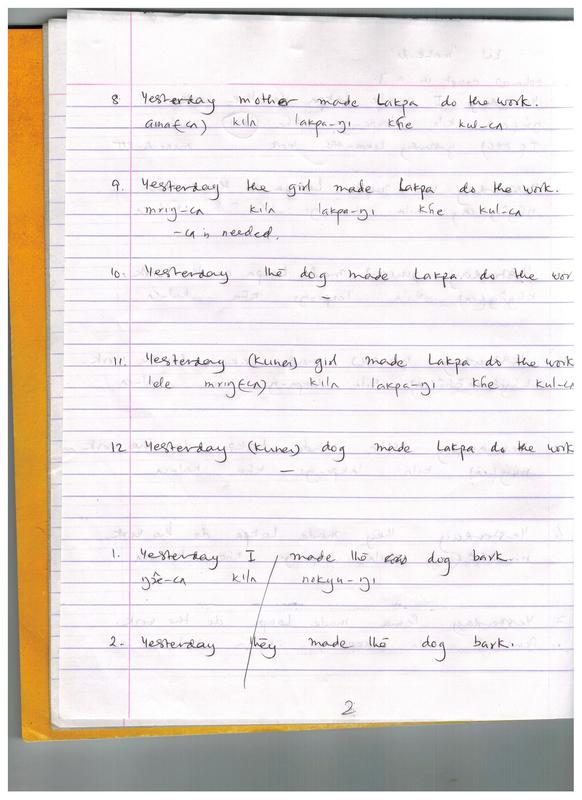 8 Yesterday mother made Lakpa do the work.
ama(-ʌ) kilʌ lakpa-ŋi khe kul-ʌ
9. Yesterday the girl made Lakpa do the work.
mriŋ-ʌ kilʌ lakpa-ŋi khe kul-ʌ
-ʌ is needed.
10. Yesterday the dog made Lakpa do the wor
–
11. Yesterday (Kunei) girl made Lakpa do the work
lele mriŋ(-ʌ) kilʌ lakpa-ŋi khe kul-ʌ
12 Yesterday (Kunei) dog made Lakpa do the work
–
1. Yesterday I made the dog bark.
kilʌ nokyu-ŋi
2. Yesterday they made the dog bark.
2